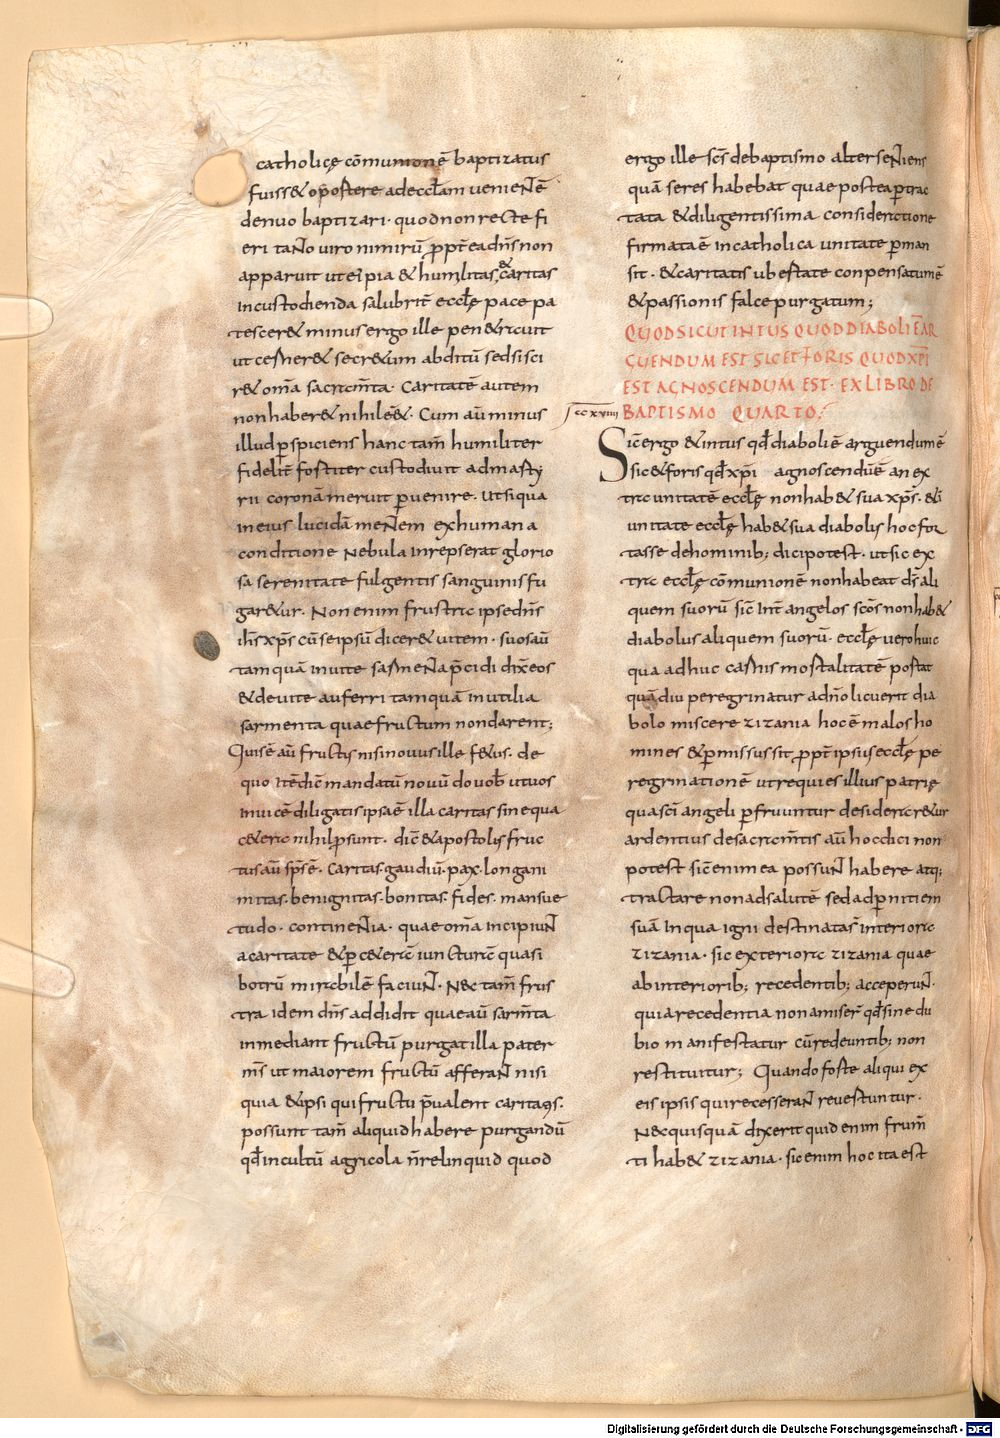 catholicę cōmunionē baptizatus
fuiss& oportere adeccl̄am uenientē
denuo baptizari· quod non recte fi
eri tanto uiro nimirū ꝓpt̄ea dn̄s non
apparuit ut ei pia & humilitas & caritas
incustodienda salubrit̄ eccl̄ę pace pa
tescer& minus ergo ille penetrauit
ut cerner& secr&um abditū sed si sci
r& om̄a sacram̄ta· Caritatē autem
non haber& nihil ē&· Cum aū minus
illud ꝑspiciens hanc tam̄ humiliter
fidelit̄ fortiter custodiuit ad marty
rii coronā meruit ꝑuenire· Ut siqua
in eius lucidā mentem ex humana
conditione nebula inrepserat glorio
sa serenitate fulgentis sanguinis fu
gar&ur· Non enim frustra ipse dn̄s
ih̄s xp̄s cū se ipsū dicer& uitem· suos aū
tamquā in uite sarmenta p̄cidi dix̄ eos
& de uite auferri tamquā inutilia
sarmenta quae fructum non darent;
Quis ē aū fructus nisi nouus ille f&us· de
quo itē dic̄ mandatū nouū do uob̄ ut uos
inuicē diligatis ipsa ē illa caritas sine qua
c&era nihil ꝓsunt· dic̄ & apostolus fruc
tus aū sp̄s ē· Caritas· gaudiū· pax· longani
mitas· benignitas· bonitas· fides· mansue
tudo· continentia· quae om̄a incipiunt
a caritate & ꝑ c&era iunctura quasi
botrū mirabilē faciunt· Nec tam̄ frus
tra idem dn̄s addidit quae aū sarm̄ta
in me dant fructū purgat illa pater
m̄s ut maiorem fructū afferant nisi
quia & ipsi qui fructu p̄ualent caritatis·
possunt tam̄ aliquid habere purgandū
qd̄ incultū agricola n̄ relinquid quod
ergo ille sc̄s de baptismo aliter sentiens
quā se res habebat quae postea ꝑtrac
tata & diligentissima consideratione
firmata ē in catholica unitate ꝑman
sit· & caritatis ubertate conpensatum ē
& passionis falce purgatum;
QUOD SICUT INTUS QUOD DIABOLI Ē AR
GUENDUM EST SIC ET FORIS QUOD XP̄I
EST AGNOSCENDUM EST· EX LIBRO DE
ccxviiii BAPTISMO QUARTO·
Sic ergo & intus qd̄ diaboli ē arguendum ē
sic & foris qd̄ xp̄i agnoscendū ē an ex
tra unitatē eccl̄ę non hab& sua xp̄s· & in
unitate eccl̄ę hab& sua diabolus hoc for
tasse de hominib; dici potest· ut sic ex
tra eccl̄ę cōmunionē non habeat dī ali
quem suorū sic int̄ angelos sc̄os non hab&
diabolus aliquem suorū· eccl̄ę uero huic
qua adhuc carnis mortalitatē portat
quādiu peregrinatur a dn̄o licuerit dia
bolo miscere zizania hoc ē malos ho
mines & ꝑmissus sit ꝓpt̄ ipsius eccl̄ę pe
regrinationē ut requies illius patrię
qua sc̄i angeli ꝑfruuntur desiderar&ur
ardentius de sacram̄tis aū hoc dici non
potest sic enim ea possunt habere atq;
tractare non ad salutē sed ad ꝑnitiem
suā in qua igni destinatas interiora
zizania· sic exteriora zizania quae
ab interiorib; recedentib; acceperunt·
quia recedentia non amiser̄ qd̄ sine du
bio manifestatur cū redeuntib; non
restituitur; Quando forte aliqui ex
eis ipsis qui recesserant reuertuntur·
Nec quisquā dixerit quid enim frum̄
ti hab& zizania· sic enim hoc ita est
Digitalisierung gefördert durch die Deutsche Forschungsgemeinschaft - DFG